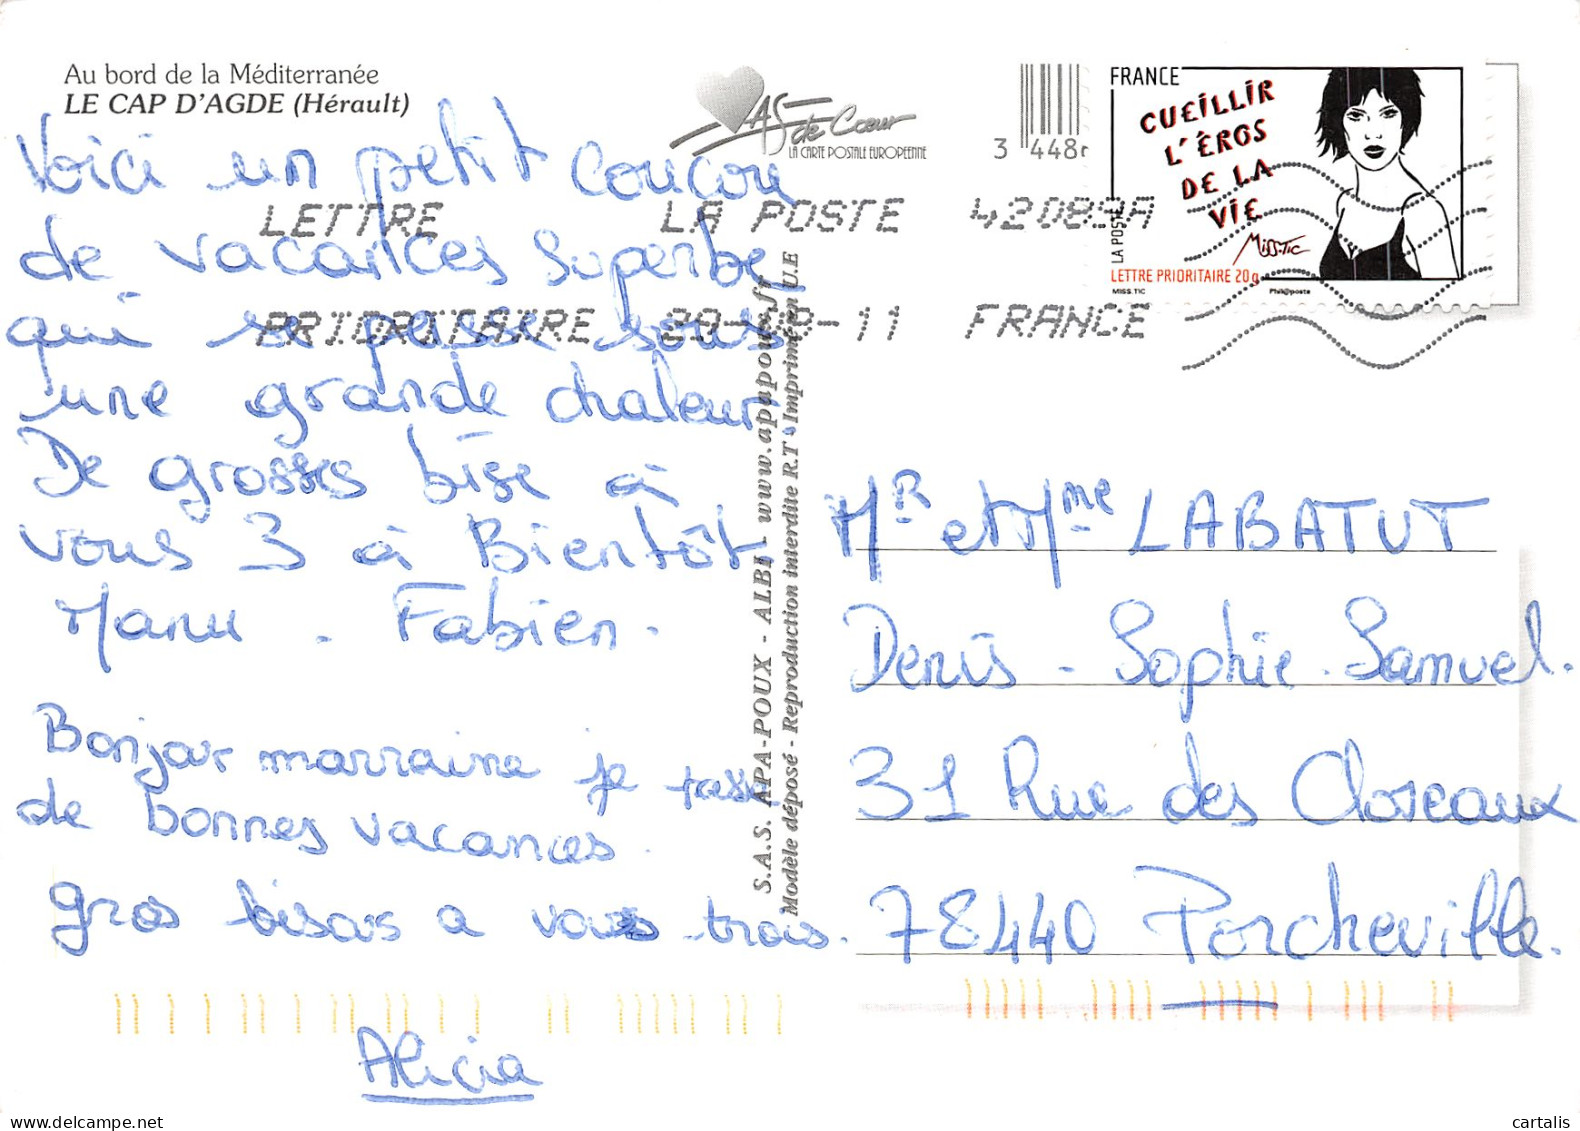 Au bord de la Méditerranée
LE CAP D'AGDE (Hérault)
Voici un petit coucou
de vacances Superbe
qui se passe sous
une grande chaleur
De grosses bise à
vous 3 à Bientôt
Manu . Fabien.
Bonjour marraine je passe
de bonnes vacances.
gros bisous a vous trois.
Alicia
AS de Cœur
LA CARTE POSTALE EUROPEENNE
3 448
LETTRE LA POSTE 42089A
PRIORITAIRE -11 FRANCE
FRANCE
CUEILLIR
L'ÉROS
DE LA
VIE
MISS.TIC
LA POSTE
LETTRE PRIORITAIRE 20g
MISS.TIC Phil@poste
S.A.S. APA-POUX - ALBI - www.apapoux.fr
Modèle déposé - Reproduction interdite R.T - Imprimé en U.E
Mr et Mme LABATUT
Denis - Sophie. Samuel.
31 Rue des Closeaux
78440 Porcheville.
delcampe.net
cartalis